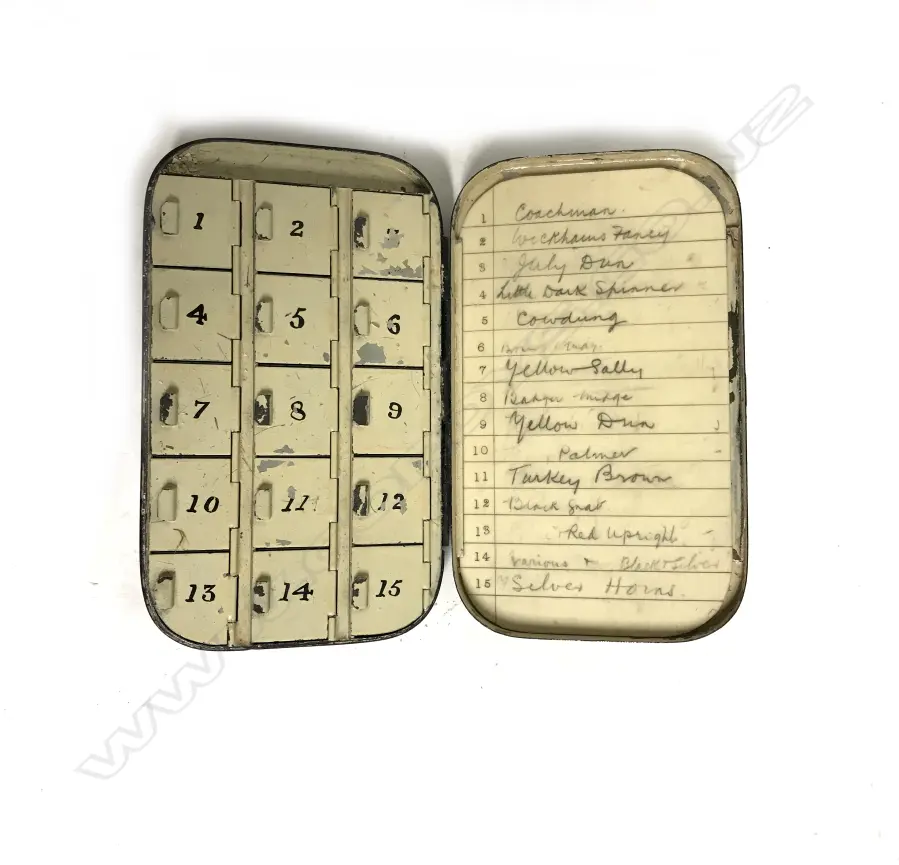 1 2
4 5 6
7 8 9
10 11 12
13 14 15
1 Coachman.
2 Wickhams Fancy
3 July Dun
4 Little Dark Spinner
5 Cowdung
6
7 Yellow Sally
8 Badger Midge
9 Yellow Dun
10 Palmer
11 Turkey Brown
12 Black Gnat
13 Red Upright
14 Various Black & Silver
15 Silver Horns.